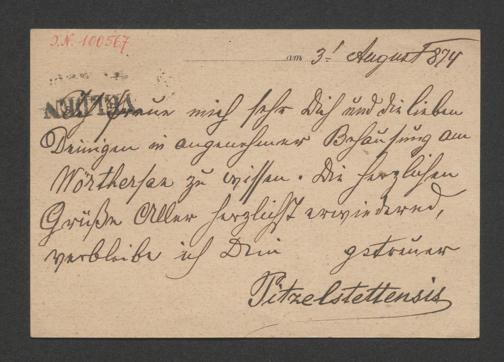 J.N. 100567
am 3ʳ August 874
freue mich sehr Dich und die lieben
Deinigen in angenehmer Behausung am
Wörthersee zu wissen. Die herzlichen
Grüße Aller herzlichst erwiedernd,
verbleibe ich Dein getreuer
Pitzelstettensis